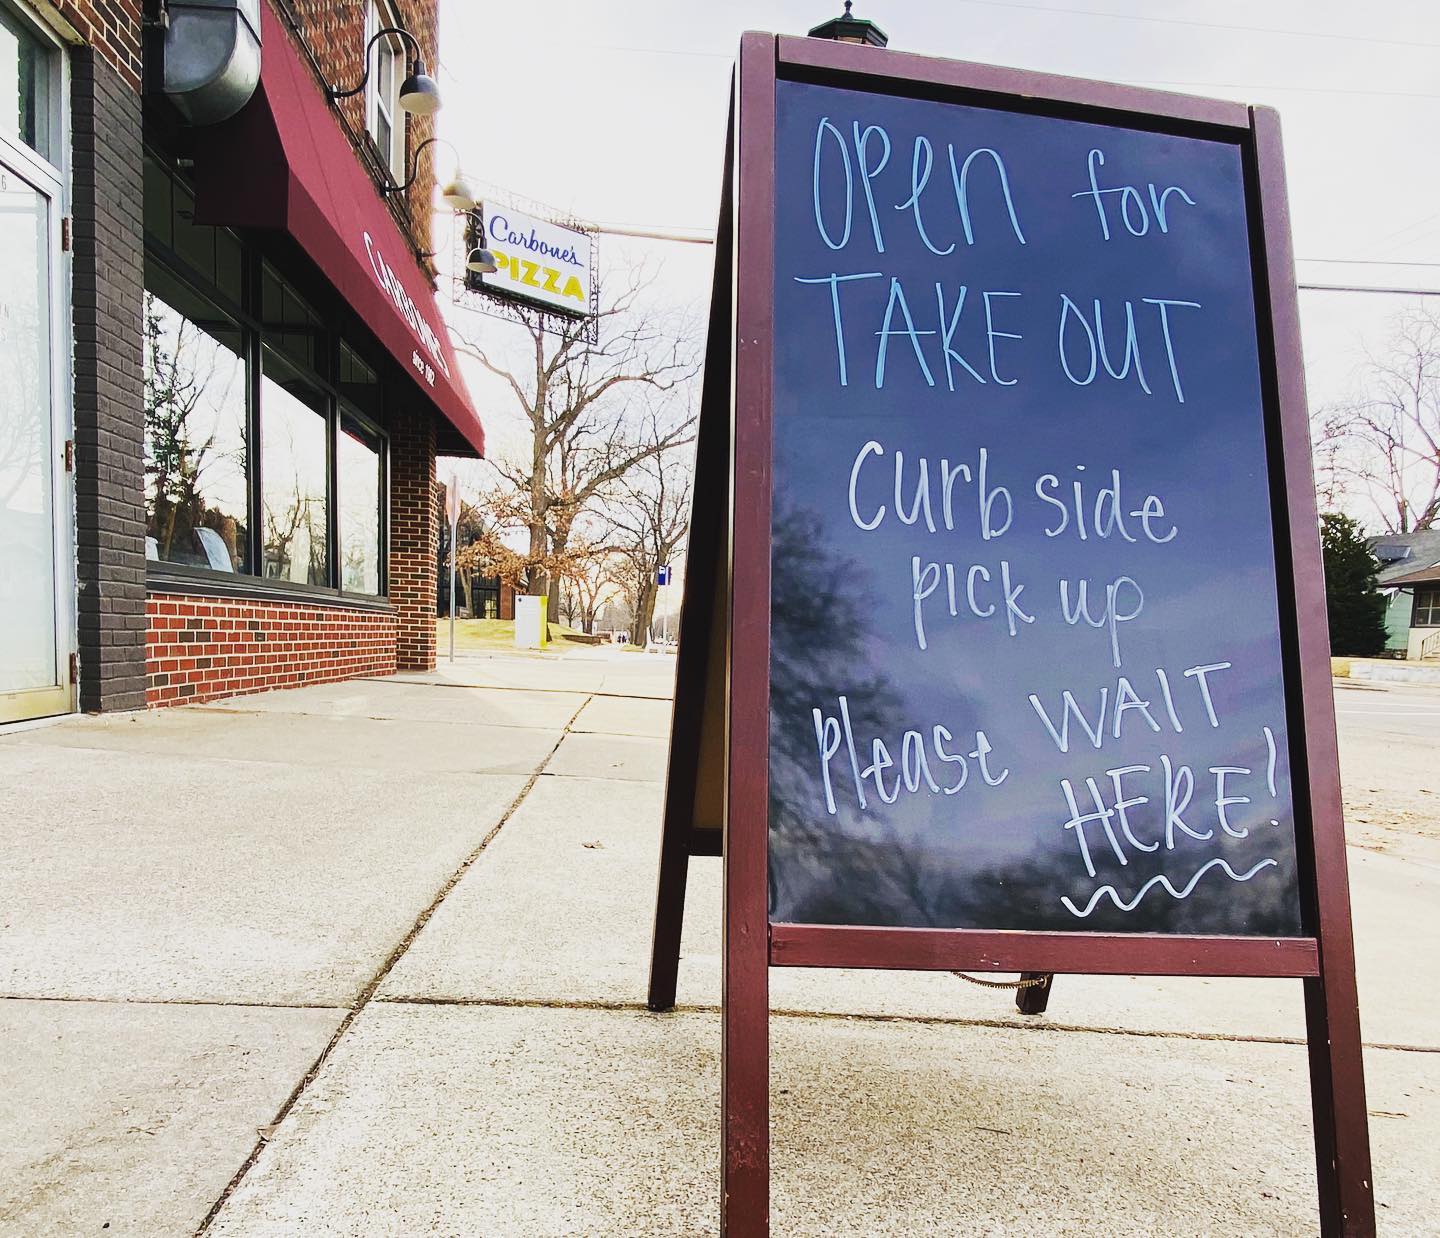 Carbone's
PIZZA
CARBONE'S
since
OPen for
TAKE OUT
Curb side
PICK up
Please WAIT
HERE!